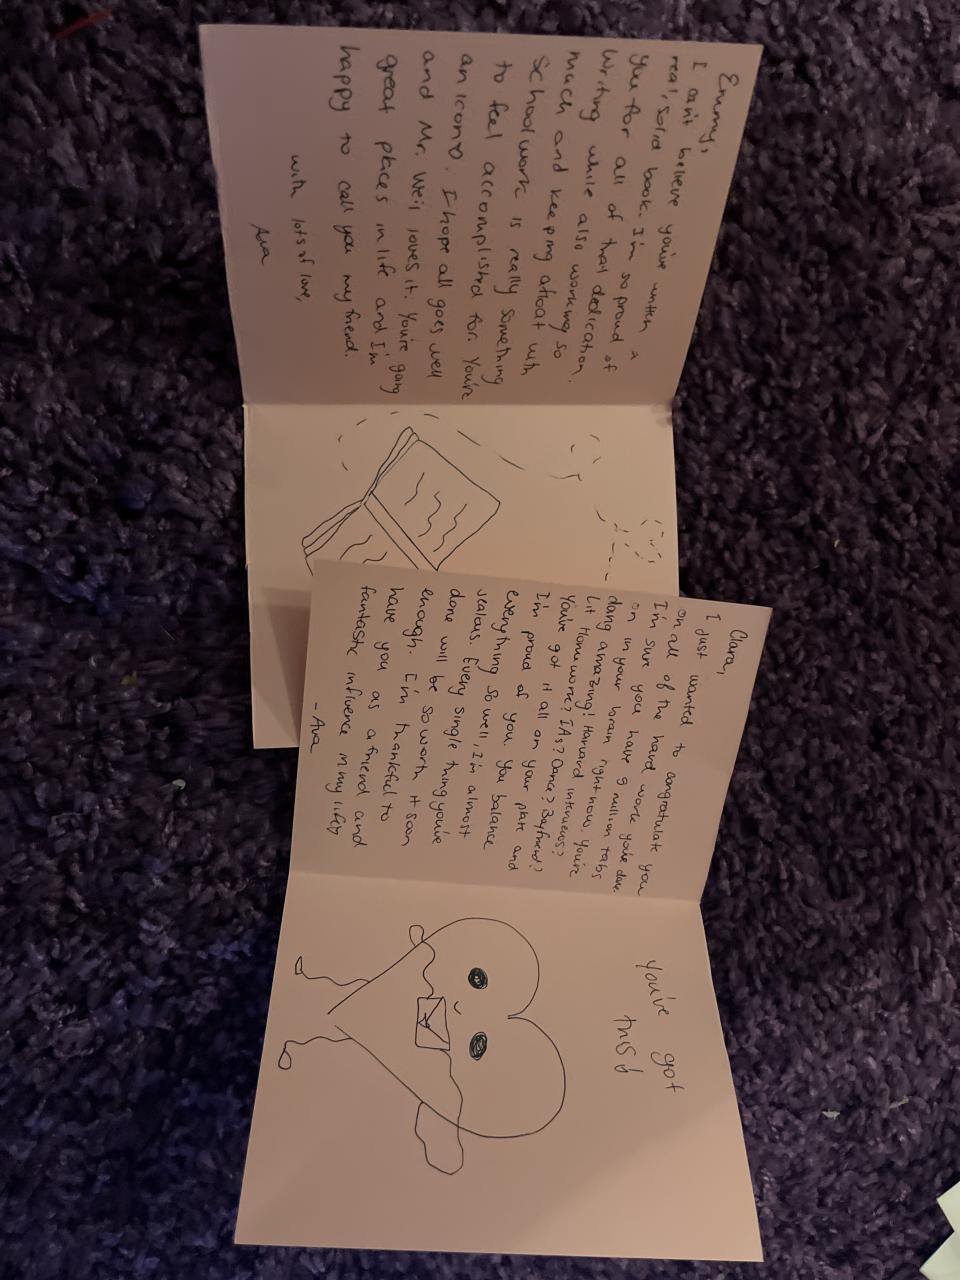 Emmy,
I can't believe you've written a
real, solid book. I'm so proud of
you for all of that dedication.
Writing while also working so
much and keeping afloat with
schoolwork is really something
to feel accomplished for. You're
an icon♡. I hope all goes well
and Mr. Weil loves it. You're going
great places in life and I'm
happy to call you my friend.
with lots of love,
Ava
Clara,
I just wanted to congratulate you
on all of the hard work you've done.
I'm sure you have 9 million tabs
on in your brain right now. You're
doing amazing! Harvard interviews?
Lit Homework? IAs? Dance? Boyfriend?
You've got it all on your plate and
I'm proud of you. You balance
everything so well, I'm almost
jealous. Every single thing you've
done will be so worth it soon
enough. I'm thankful to
have you as a friend and
fantastic influence in my life♡
- Ava
you've got
this!